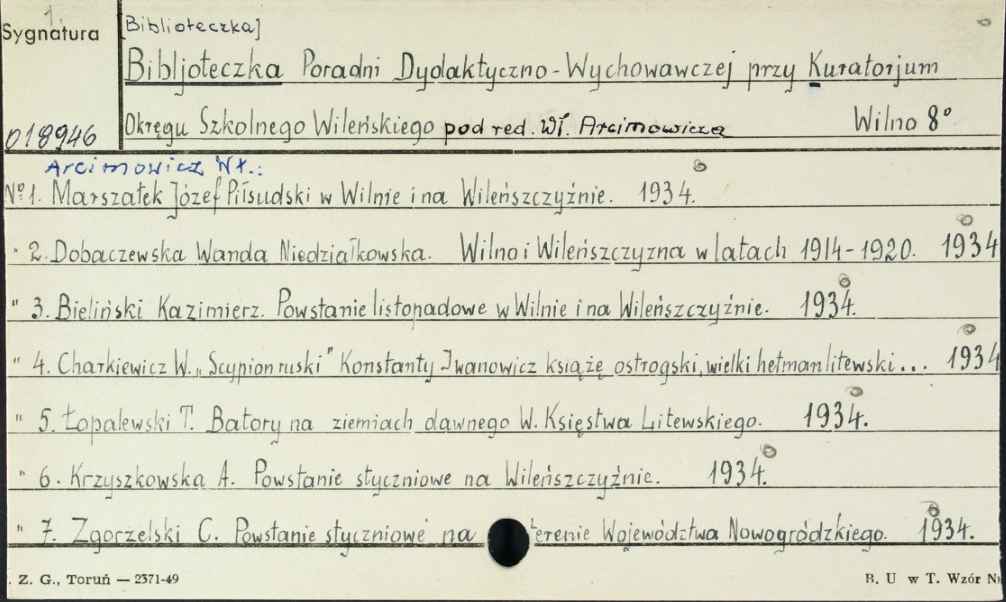 1.
Sygnatura
[Biblioteczka]
Bibljoteczka Poradni Dydaktyczno-Wychowawczej przy Kuratorjum
018946
Okręgu Szkolnego Wileńskiego pod red. Wł. Arcimowicza Wilno 8°
Arcimowicz Wł.:
Nº 1. Marszałek Józef Piłsudski w Wilnie i na Wileńszczyźnie. 1934.
" 2. Dobaczewska Wanda Niedziałkowska. Wilno i Wileńszczyzna w latach 1914-1920. 1934
" 3. Bieliński Kazimierz. Powstanie listopadowe w Wilnie i na Wileńszczyźnie. 1934.
" 4. Charkiewicz W. „Scypion ruski" Konstanty Iwanowicz książę ostrogski, wielki hetman litewski... 1934
" 5. Łopalewski T. Batory na ziemiach dawnego W. Księstwa Litewskiego. 1934.
" 6. Krzyszkowska A. Powstanie styczniowe na Wileńszczyźnie. 1934.
" 7. Zgorzelski C. Powstanie styczniowe na terenie Województwa Nowogródzkiego. 1934.
. Z. G., Toruń — 2371-49 B. U w T. Wzór N